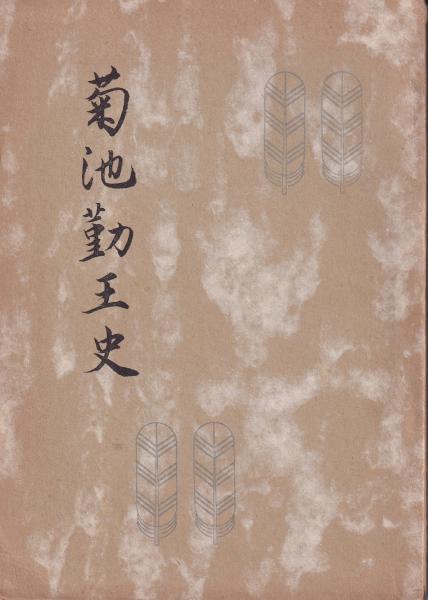 菊池勤王史